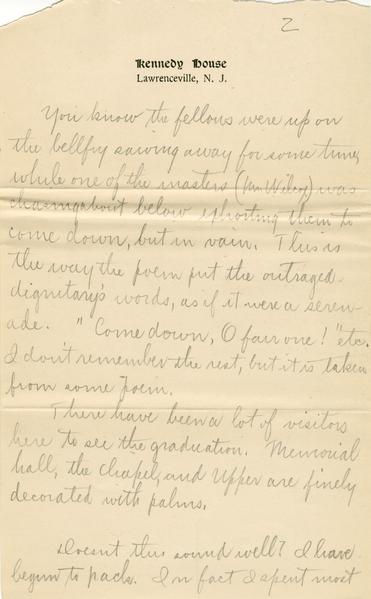 2
Kennedy House
Lawrenceville, N. J.
You know the fellows were up on
the bellfry sawing away for some time,
while one of the masters (Mr. ) was
chasing about below exhorting them to
come down, but in vain. This is
the way the poem put the outraged
dignitary's words, as if it were a seren-
ade. "Come down, O fair one!" etc.
I don't remember the rest, but it is taken
from some poem.
There have been a lot of visitors
here to see the graduation. Memorial
hall, the Chapel, and Upper are finely
decorated with palms.
Doesn't this sound well? I have
begun to pack. In fact I spent most